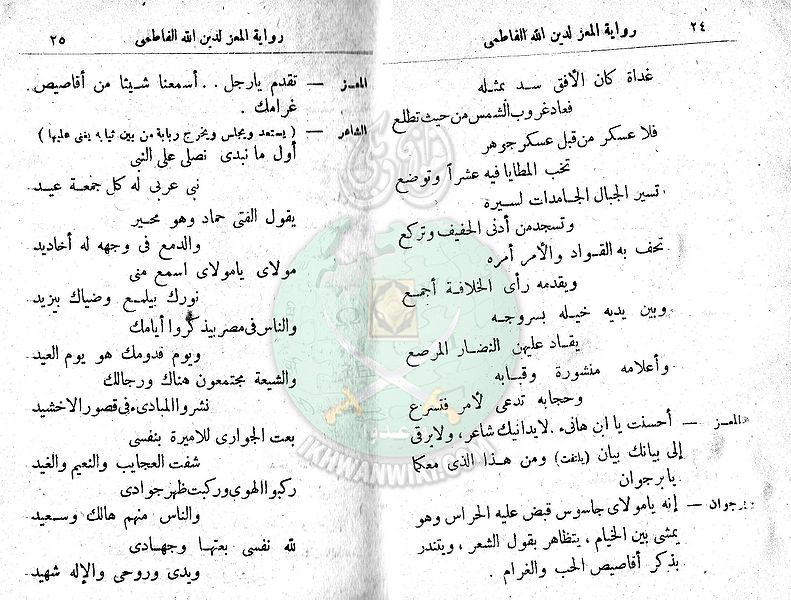 ٢٤
رواية المعز لدين الله الفاطمى
غداة كان الأفق سد بمثله
فعاد غروب الشمس من حيث تطلع
فلا عسكر من قبل عسكر جوهر
تخب المطايا فيه عشراً وتوضع
تسير الجبال الجامدات لسيره
وتسجد من أدنى الحفيف وتركع
تحف به القواد والأمر أمره
ويقدمه رأى الخلافة أجمع
وبين يديه خيله بسروجه
يقاد عليهن النضار المرصع
وأعلامه منشورة وقبابه
وحجابه تدعى لأمر فتسرع
المعز — أحسنت يا ابن هانىء . لايدانيك شاعر ، ولا يرقى
إلى بيانك بيان (يلتفت) ومن هذا الذى معكما
يا برجوان
برجوان — إنه يامولاى جاسوس قبض عليه الحراس وهو
يمشى بين الخيام ، يتظاهر بقول الشعر ، ويتندر
بذكر أقاصيص الحب والغرام .
رواية المعز لدين الله الفاطمى
٢٥
المعز — تقدم يارجل . . أسمعنا شيئا من أقاصيص
غرامك .
الشاعر — ( يستعد ويجلس ويخرج ربابة من بين ثيابه يغنى عليها )
أول ما نبدى نصلى على النبى
نبى عربى له كل جمعة عيد
يقول الفتى حماد وهو محير
والدمع فى وجهه له أخاديد
مولاى يامولاى اسمع منى
نورك بيلمع وضياك بيزيد
والناس فى مصر بيذكروا أيامك
ويوم قدومك هو يوم العيد
والشيعة مجتمعون هناك ورجالك
نشروا المبادىء فى قصور الاخشيد
بعت الجوارى للاميرة بنفسى
شفت العجايب والنعيم والغيد
ركبوا الهوى وركبت ظهر جوادى
والناس منهم هالك وسعيد
لله نفسى بعتها وجهادى
ويدى وروحى والإله شهيد
IKHWANWIKI.COM
وأعدوا